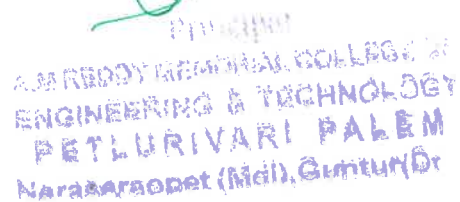 Principal
A.M REDDY MEMORIAL COLLEGE OF
ENGINEERING & TECHNOLOGY
PETLURIVARI PALEM
Narasaraopet (Mdl), Guntur(Dt